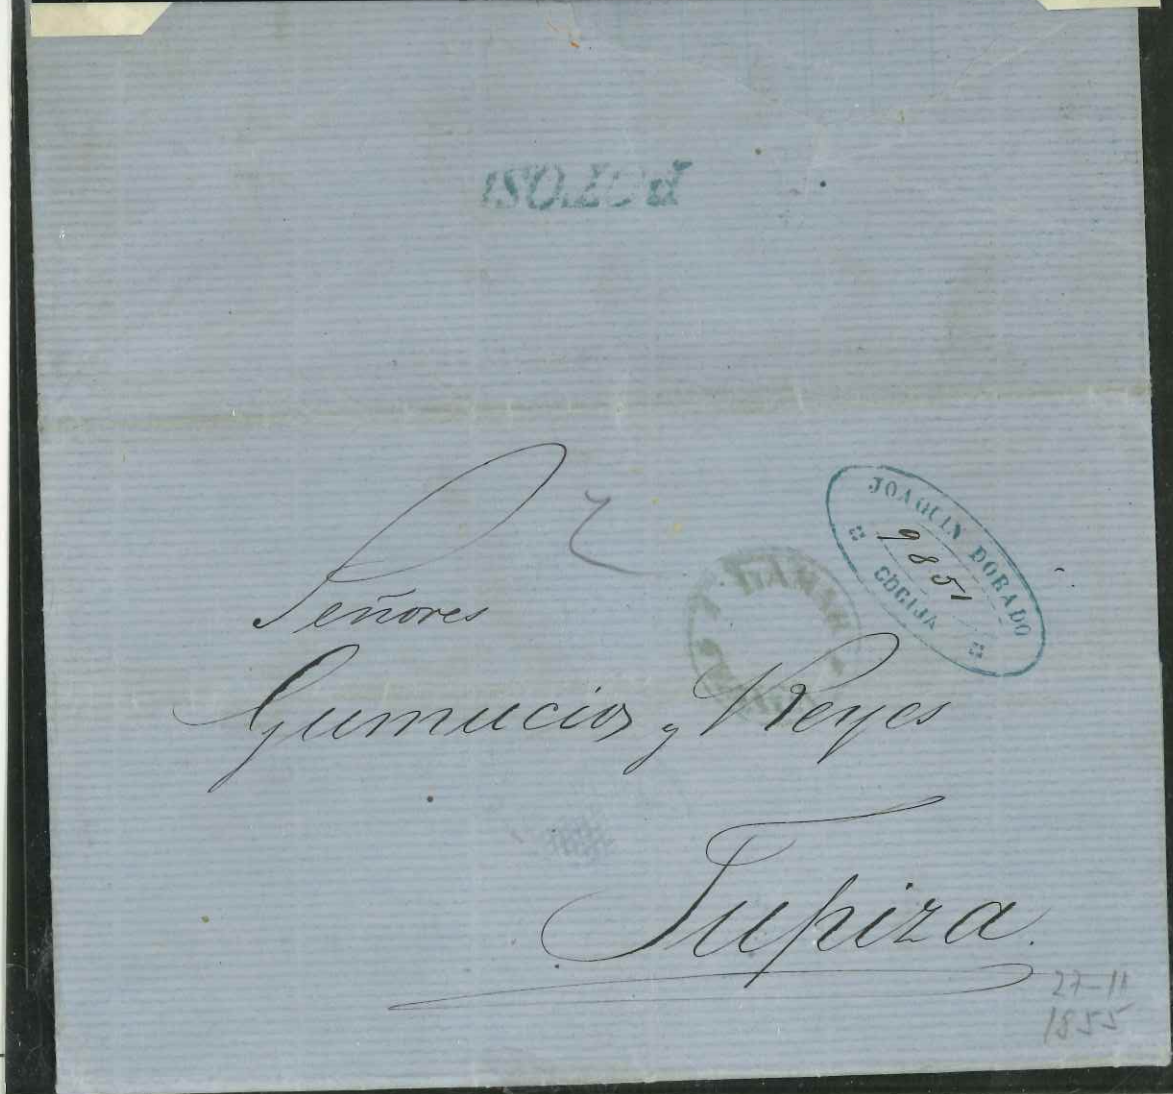 POTOSI
JOAQUIN DORADO
9851
COBIJA
Señores
Gumucios y Reyes
Tupiza
27-11
1855